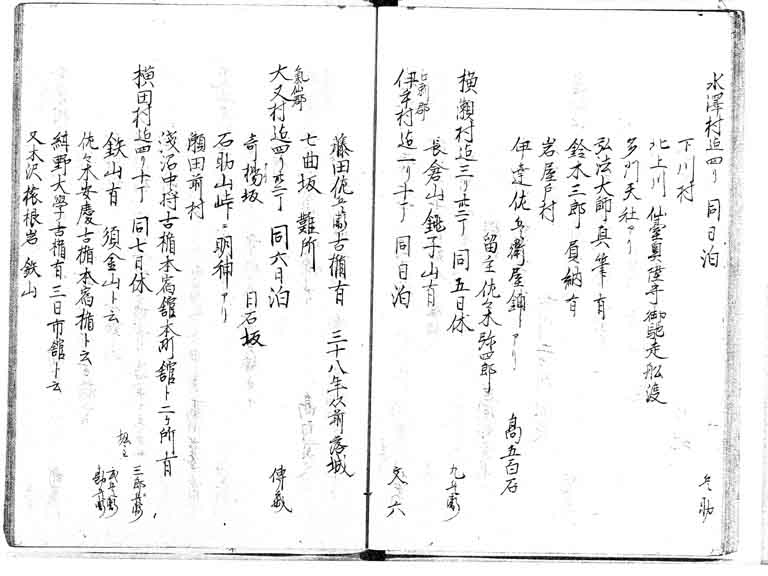 水澤村迄四リ 同日泊 久助
下川村
北上川 仙臺奥陸守御馳走舩渡
多川天社アリ
弘法大師真筆有
鈴木三郎 奉納有
岩屋戸村
伊達佐兵衛屋鋪アリ 高五百石
留主佐々木弥四郎
横瀬村迄三リ廿三丁 同五日休 九兵衛
長倉山 銚子山有
江刺郡
伊手村迄二リ十丁 同日泊 文六
藤田佐兵衛古楯有 三十八年以前落城
七曲坂 難所
氣仙郡
大又村迄四リ廿二丁 同六日泊 傳蔵
奇揚坂 目石坂
石助山峠ニ明神アリ
瀬田前村
浅沼中将古楯本宿舘本町舘ト二ヶ所有
横田村迄四リ十丁 同七日休 三郎兵衛
鉄山有 須金山ト云
佐々木安慶古楯本宿楯ト云
純野大学古楯有 三日市舘ト云
又木沢 根岩 鉄山